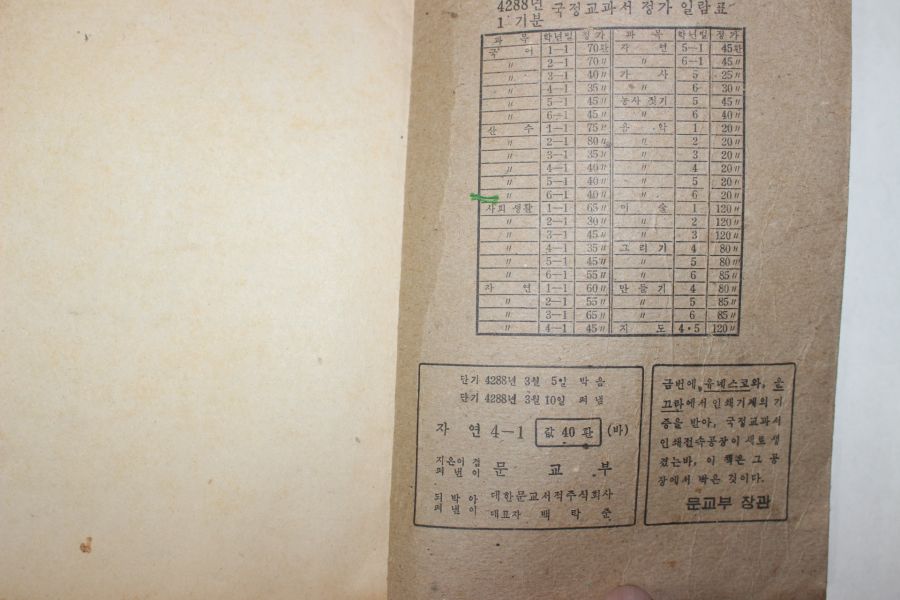 4288년 국정교과서 정가 일람표
1 기분
과 목 학년밀 정 가 과 목 학년밀 정 가
국 어 1—1 70환 자 연 5—1 45환
〃 2—1 70〃 〃 6—1 45〃
〃 3—1 40〃 가 사 5 25〃
〃 4—1 35〃 〃 6 30〃
〃 5—1 45〃 농사 짓기 5 45〃
〃 6—1 45〃 〃 6 40〃
산 수 1—1 75〃 음 악 1 20〃
〃 2—1 80〃 〃 2 20〃
〃 3—1 35〃 〃 3 20〃
〃 4—1 40〃 〃 4 20〃
〃 5—1 40〃 〃 5 20〃
〃 6—1 40〃 〃 6 20〃
사회 생활 1—1 65〃 미 술 1 120〃
〃 2—1 30〃 〃 2 120〃
〃 3—1 45〃 〃 3 120〃
〃 4—1 35〃 그 리 기 4 80〃
〃 5—1 45〃 〃 5 80〃
〃 6—1 55〃 〃 6 85〃
자 연 1—1 60〃 만 들 기 4 80〃
〃 2—1 55〃 〃 5 85〃
〃 3—1 65〃 〃 6 85〃
〃 4—1 45〃 지 도 4·5 120〃
단기 4288년 3월 5일 박음
단기 4288년 3월 10일 펴냄
자 연 4—1 값 40 환 (바)
지은이 겸
펴 낸 이 문 교 부
되 박 아
펴 낸 이 대한문교서적주식회사
대표자 백 낙 준
금번에, 유네스코와, 운
끄라에서 인쇄기계의 기
증을 받아, 국정교과서
인쇄전속공장이 새로 생
겼는바, 이 책은 그 공
장에서 박은 것이다.
문교부 장관